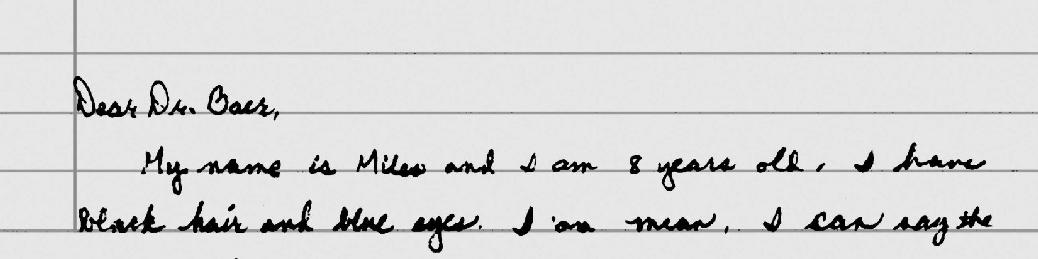 Dear Dr. Baer,
My name is Miles and I am 8 years old. I have
black hair and blue eyes. I'm mean, I can say the